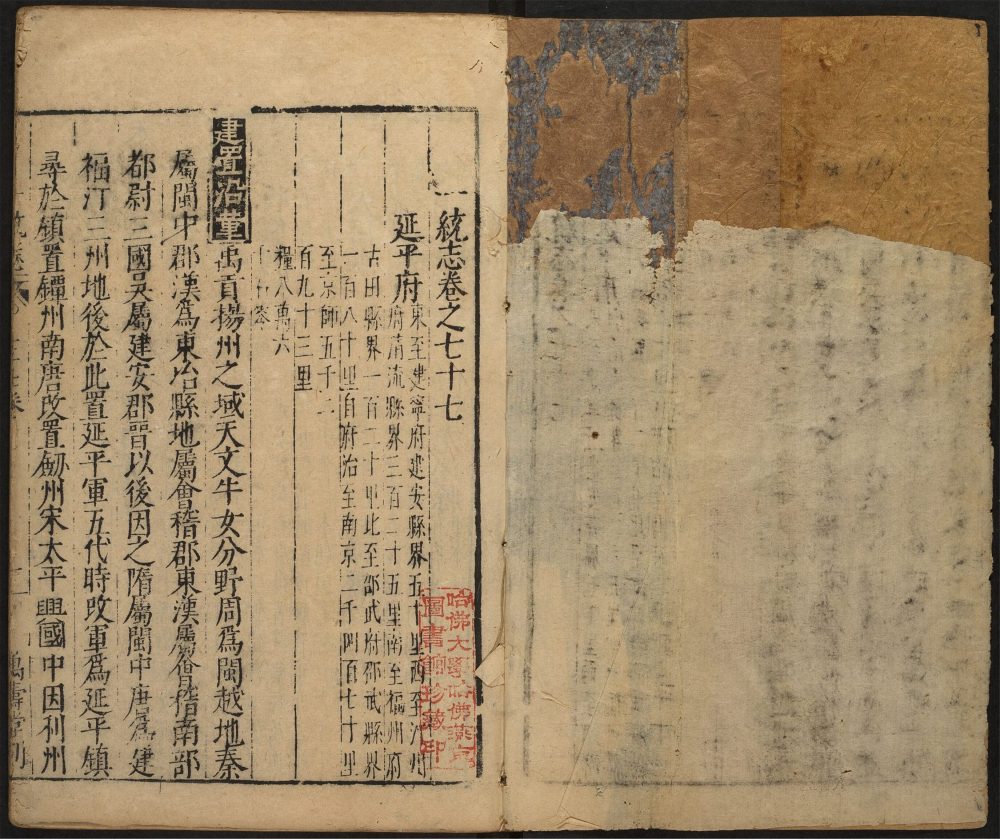 一統志卷之七十七
延平府東至建寧府建安縣界五十里西至汀州
府清流縣界三百二十五里南至福州府
古田縣界一百二十里北至邵武府邵武縣界
一百八十里自府治至南京二千四百七十里
至京師五千二
百九十三里
糧八萬六
建置沿革禹貢揚州之域天文牛女分野周為閩越地秦
屬閩中郡漢為東冶縣地屬會稽郡東漢屬會稽南部
都尉三國吳屬建安郡晉以後因之隋屬閩中唐為建
福汀三州地後於此置延平軍五代時改軍為延平鎮
尋於鎮置鐔州南唐改置劒州宋太平興國中因利州
萬壽堂刊
哈佛大學哈佛燕京
圖書館珍藏印